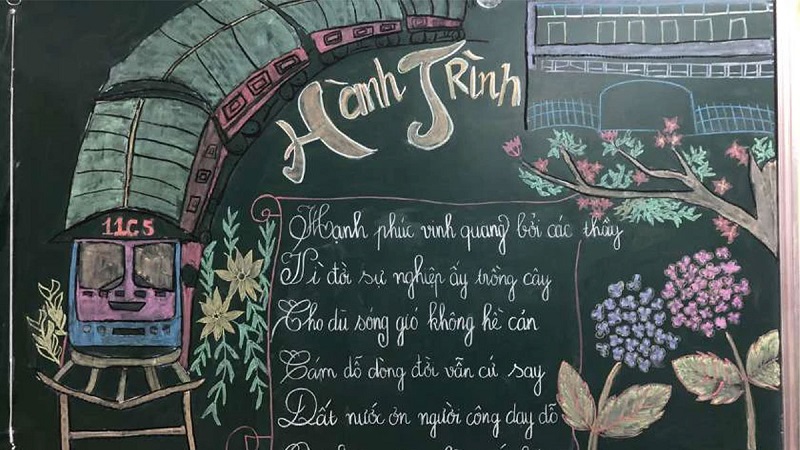 Hành Trình
11C5
Hạnh phúc vinh quang bởi các thầy
Vì đời sự nghiệp ấy trồng cây
Cho dù sóng gió không hề cản
Cám dỗ dòng đời vẫn cứ say
Đất nước ơn người công dạy dỗ